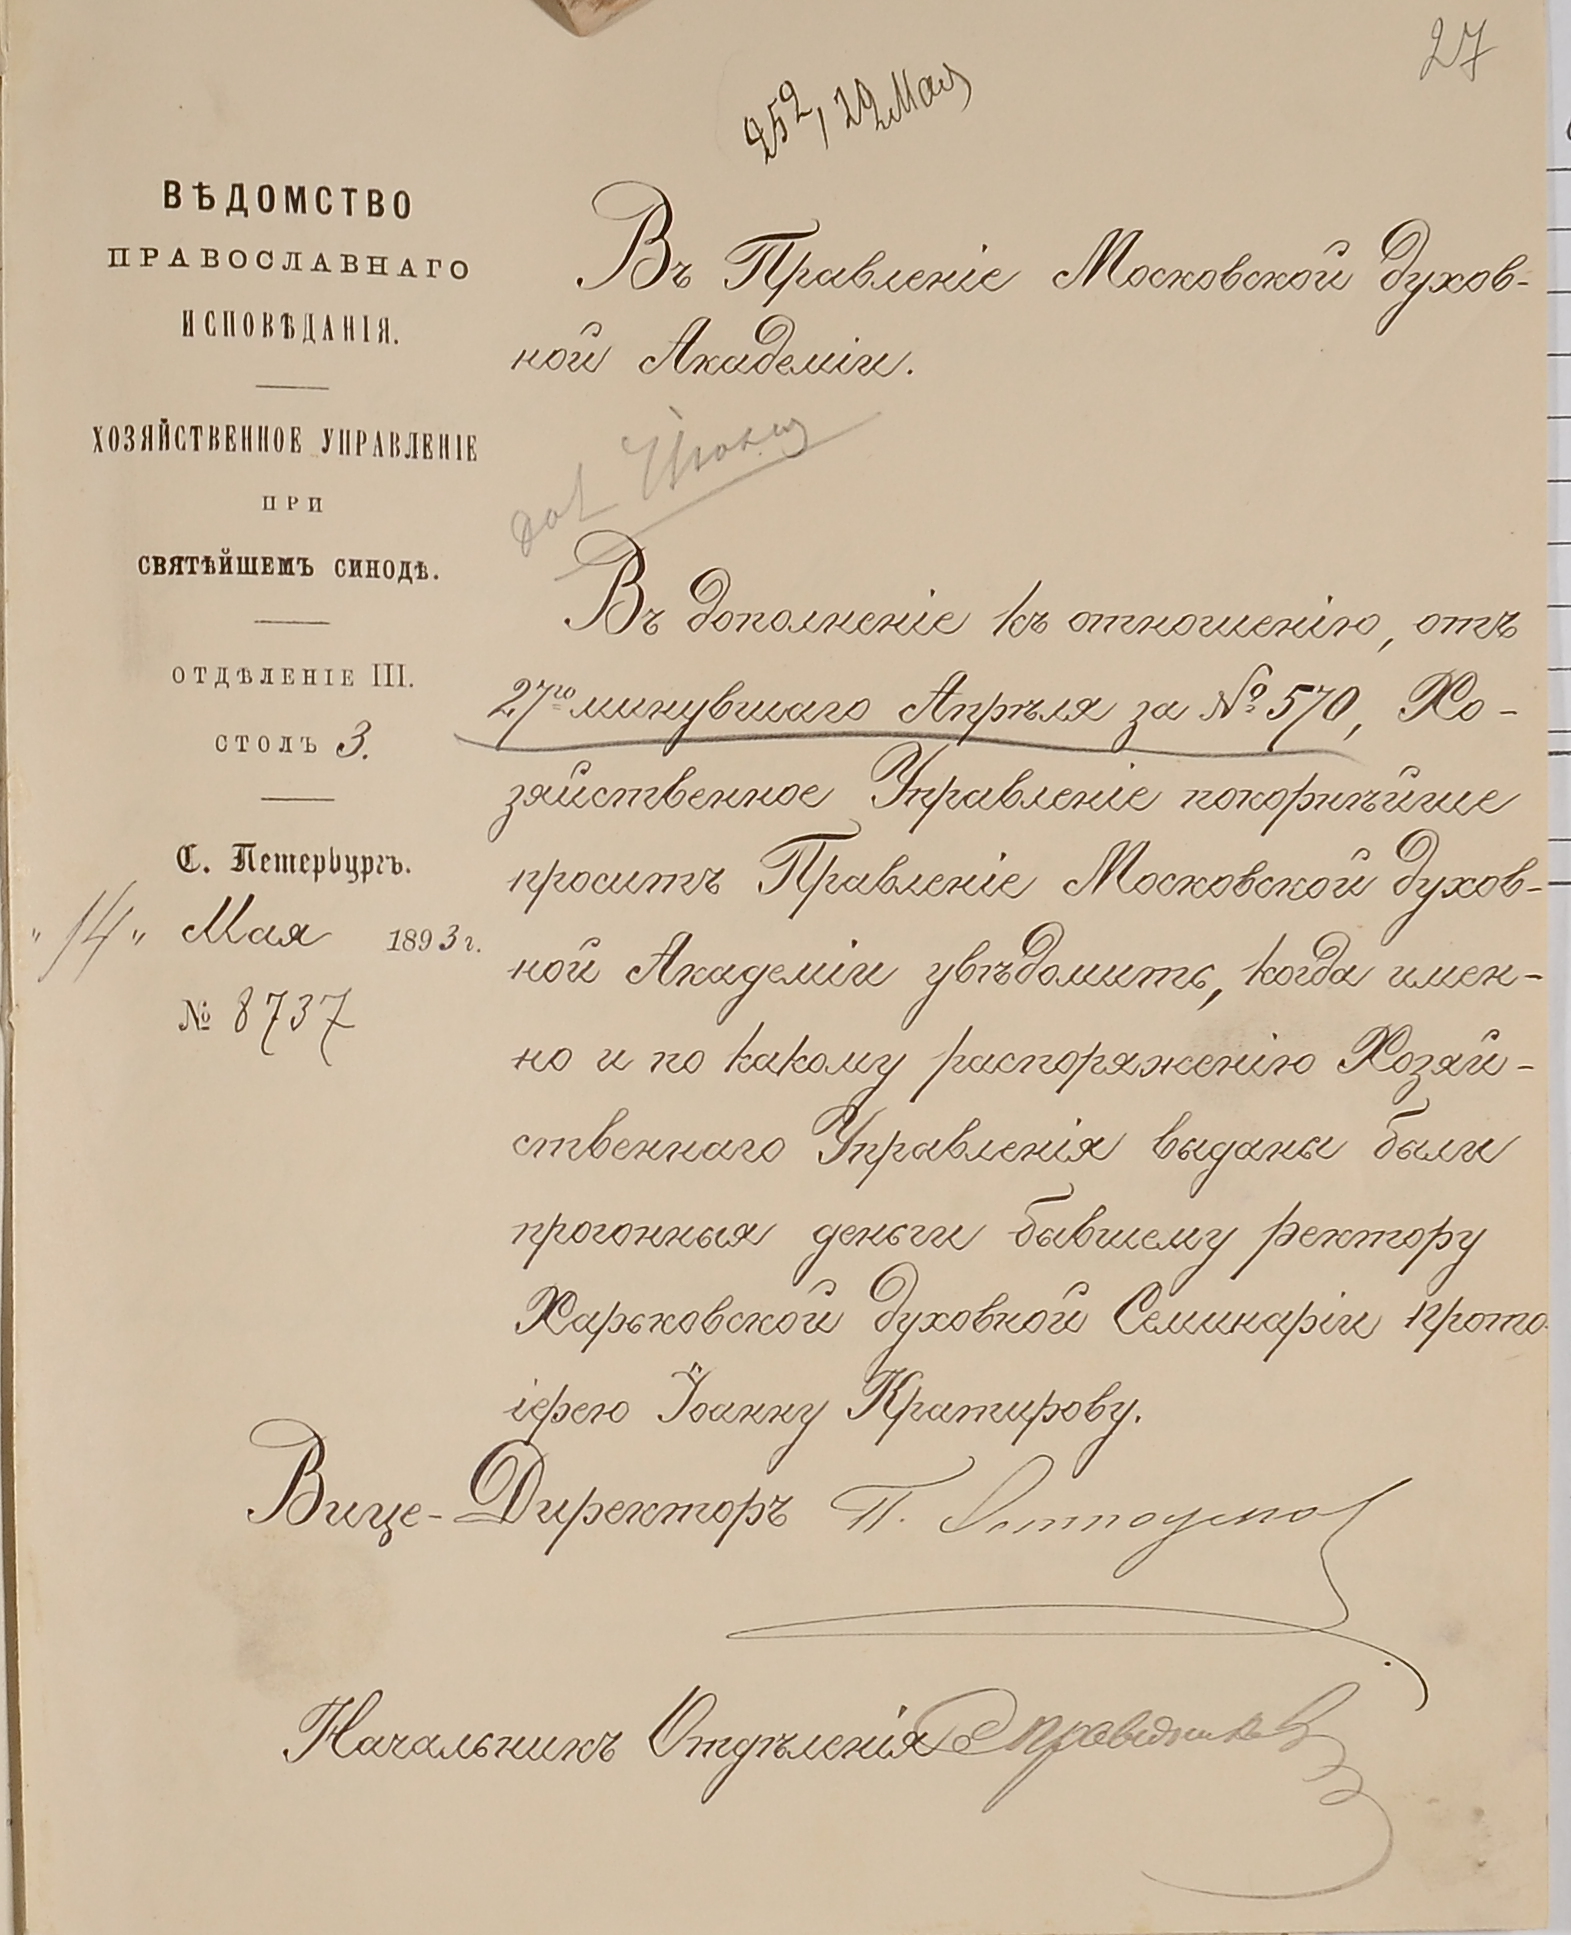 27
252, 29 Мая
ВѢДОМСТВО
ПРАВОСЛАВНАГО
ИСПОВѢДАНІЯ.
ХОЗЯЙСТВЕННОЕ УПРАВЛЕНІЕ
ПРИ
СВЯТѢЙШЕМЪ СИНОДѢ.
ОТДѢЛЕНІЕ III.
СТОЛЪ 3.
С. Петербургъ.
„ 14 „ Мая 1893 г.
№ 8737
Въ Правленіе Московской Духов-
ной Академіи.
Въ дополненіе къ отношенію, отъ
27го минувшаго Апрѣля за № 570, Хо-
зяйственное Управленіе покорнѣйше
проситъ Правленіе Московской Духов-
ной Академіи увѣдомить, когда имен-
но и по какому распоряженію Хозяй-
ственнаго Управленія выданы были
прогонныя деньги бывшему ректору
Харьковской Духовной Семинаріи прото-
іерею Іоанну Кратирову.
Вице-Директоръ П.
Начальникъ Отдѣленія